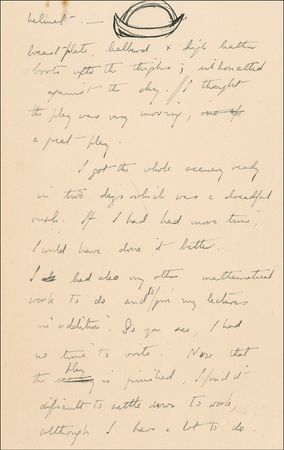 helmet —
breastplate, halberd & high leather
boots up to the thighs; silhouetted
against the sky. I thought
the play was very moving,
a great play.
I got the whole scenery ready
in two days which was a dreadful
rush. If I had had more time,
I could have done it better.
I had also my other mathematical
work to do and to give my lectures
in addition. So you see, I had
no time to write. Now that
the play is finished, I find it
difficult to settle down to work,
although I have a lot to do.